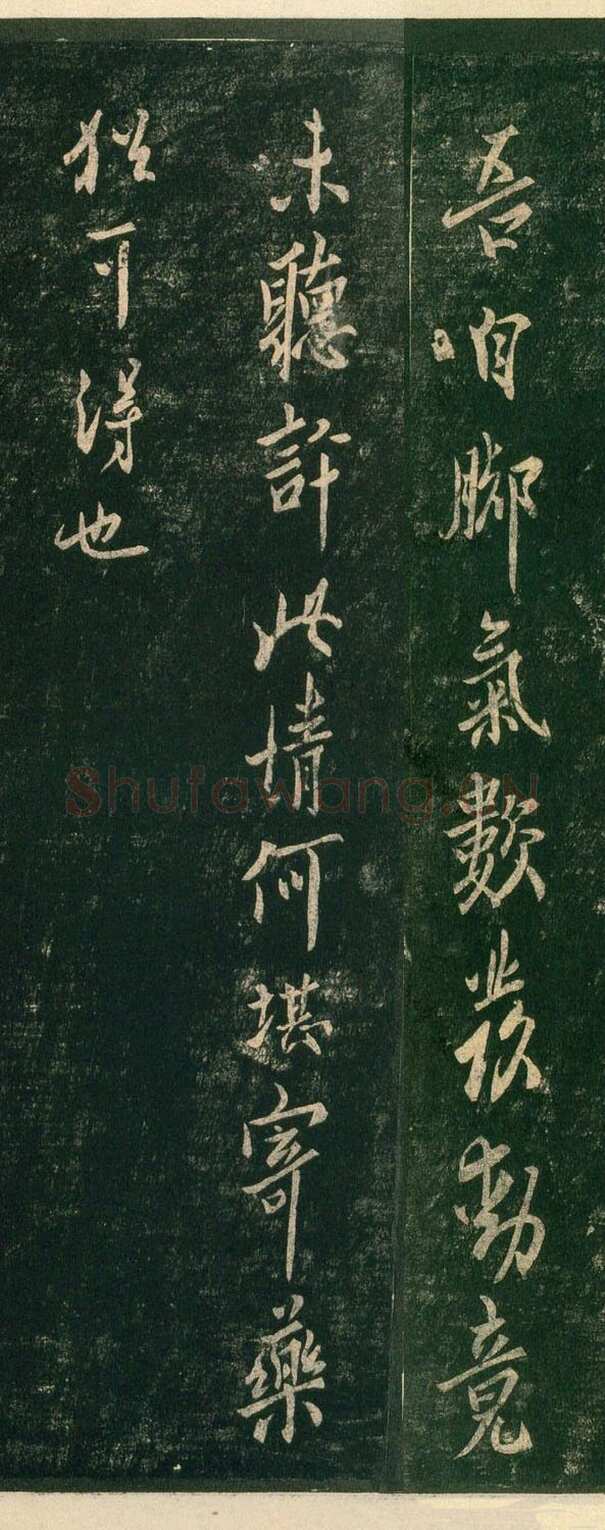 吾自脚氣數發動竟
未聽許此情何堪寄藥
猶可得也
Shufawang.cn